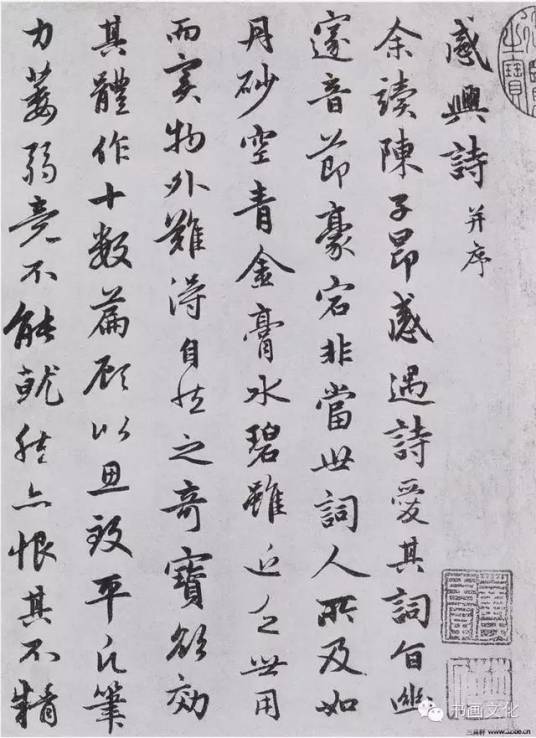 感興詩 并序
余讀陳子昂感遇詩愛其詞旨幽
邃音節豪宕非當世詞人所及如
丹砂空青金膏水碧雖近乏世用
而實物外難得自然之奇寶欲効
其體作十數篇顧以思致平凡筆
力萎弱竟不能就然亦恨其不精
书画文化